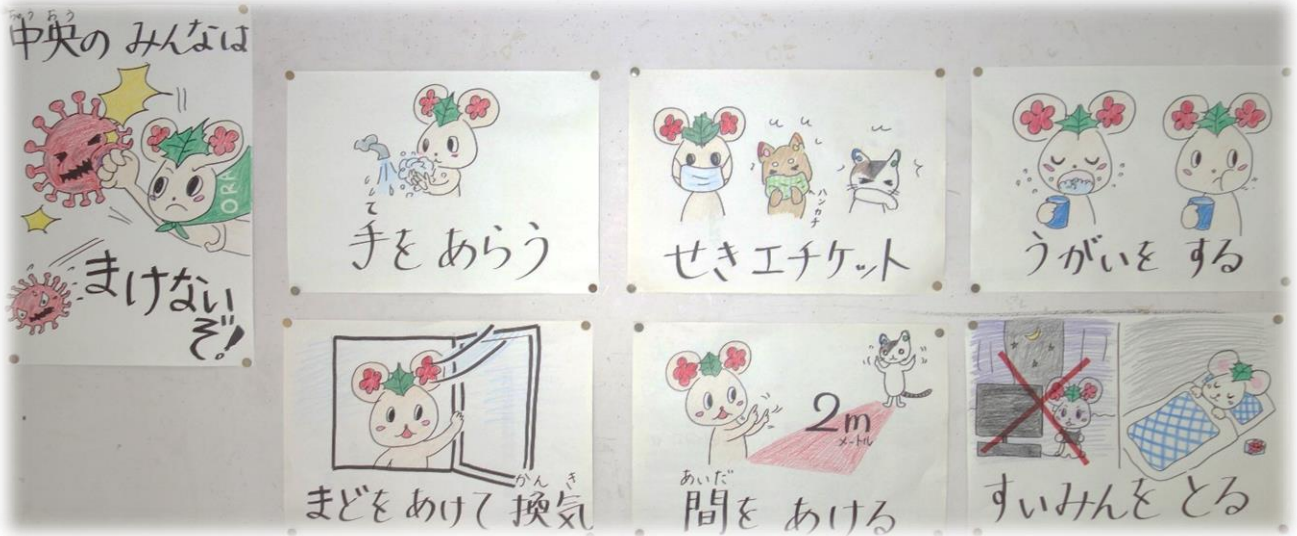 ちゅうおう
中央の みんなは
ORA
まけない
ぞ!
て
手を あらう
ハンカチ
せきエチケット
うがいを する
かんき
まどを あけて 換気
2m
メートル
あいだ
間を あける
すいみんを とる